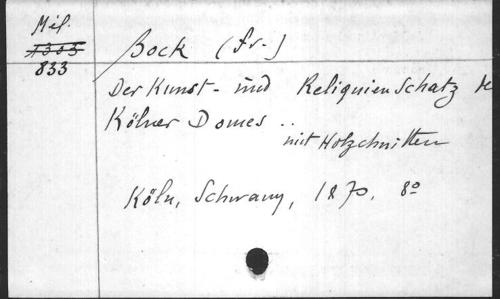 Mil.
1303
833
Bock (Fr.)
Der Kunst- und Reliquien Schatz
Kölner Domes ..
mit Holzchnitten
Köln, Schwann, 1870. 8º